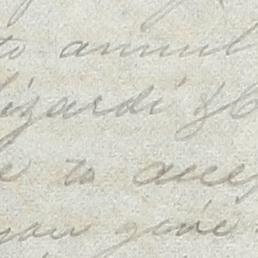 to annul
izardi & C
e to accep
you give